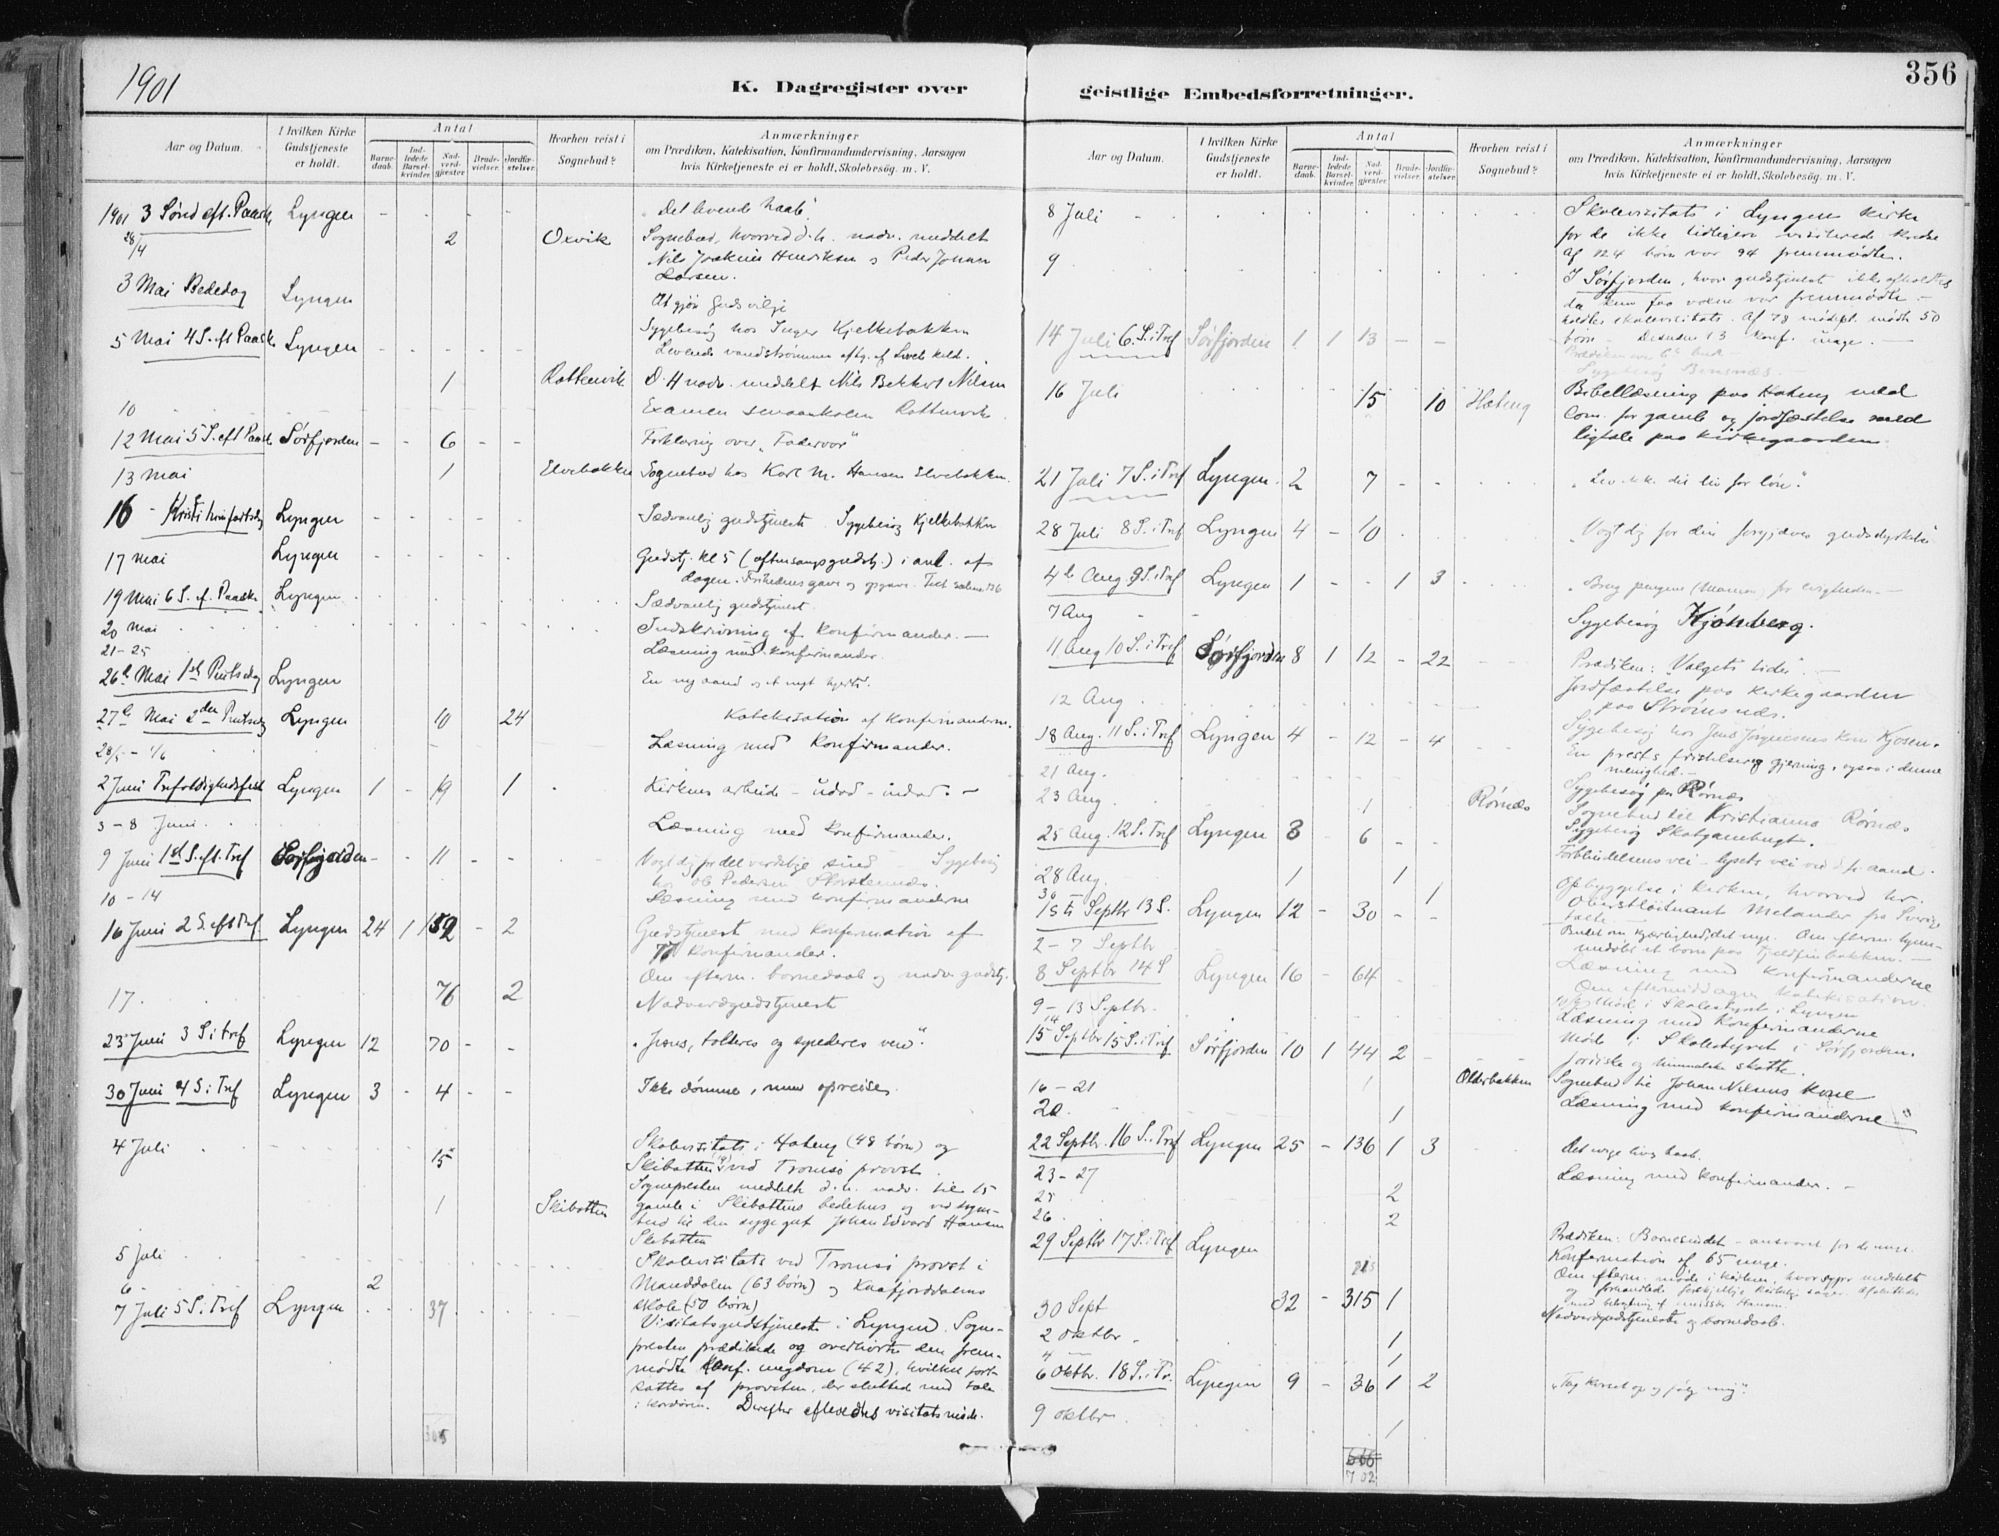 1901
K. Dagregister over geistlige Embedsforretninger.
356
Aar og Datum.
I hvilken Kirke Gudstjeneste er holdt.
Antal
Barnedaab.
Indledede Barselkvinder.
Nadverdgjester
Brudevielser.
Jordfæstelser.
Hvorhen reist i Sognebud?
Anmærkninger
om Prædiken, Katekisation, Konfirmandundervisning, Aarsagen
hvis Kirketjeneste ei er holdt, Skolebesøg m. V.
1901 3 Sønd eft. Paaske Lyngen - - - - - "Det levende haab".
28/4 2 Oxvik Sognebud, hvorved d. h. nadv. meddelt
Nils Joakim Henriksen og Peder Johan
Larsen.
3 Mai Bededag Lyngen At gjøre Guds vilje
5 Mai 4 S. eft Paaske Lyngen Sygebesøg hos Inger Kjelkebakken
Levende vandstrømmer
1 Rottenvik D. H nadv. meddelt Nils Bekkert Nilsen
10 Examen Rottenvik.
12 Mai 5 S. eft Paaske Sørfjorden - - 6 - - Forklaring over "Fadervor"
13 Mai 1 Elvebakken Sognebud hos Karl M. Hansen Elvebakken.
16 - Kristi himfartsdag Lyngen Sædvanlig gudstjeneste. Sygebesøg Kjelkebakken
17 Mai Lyngen Gudstj. kl 5 (aftensangsgudstj.) i anl. af
dagen. Frihedens gave og opgave. Text salme 126
19 Mai 6 S. ef. Paaske Lyngen Sædvanlig gudstjenest.
20 Mai Indskrivning af Konfirmander. -
21-25 Læsning med Konfirmander.
26de Mai 1ste Pintsedag Lyngen En ny aand og et nyt hjerte.
27de Mai 2den Pintsedag Lyngen 10 24 Katekisation af Konfirmanderne.
28/5 - 1/6 Læsning med Konfirmander.
2 Juni Trefoldighedsfest Lyngen 1 - 19 1 Kirkens arbeide - udad - indad. -
3-8 Juni Læsning med Konfirmander.
9 Juni 1st S. eft. Tref Sørfjorden - - 11 - - Vogt dig for det verdslige sind - Sygebesøg
hos Ob Pedersen Storstennes.
10-14 Læsning med Konfirmanderne
16 Juni 2 S. eft Tref Lyngen 24 1 152 - 2 Gudstjenest med Konfirmation af
Konfirmander.
Om efterm. barnedaab og nadv. gudstj.
17. 76 2 Nadverdgudstjenest
23 Juni 3 S i Tref Lyngen 12 70 - - "Jesus, tolderes og synderes ven".
30 Juni 4 S. i Tref Lyngen 3 - 4 - - Ikke dømme, men opreise
4 Juli 15 Skolevisitats i Hateng (48 børn) og
Skibotten ved Tromsø provst.
Sognepresten meddelte d. h. nadv. til 15
1 Skibotten gamle i Skibottens bedehus og ved sognebud
til den syge gut Johan Edvard Hansen
Skibotten
5 Juli Skolevisitats ved Tromsø provst i
6 - 2 Manddalen (63 børn) og Kaafjorddalens
skole (50 børn)
7 Juli 5 S. i Tref Lyngen 37 Visitatsgudstjeneste i Lyngen. Sognepresten
prædikede og overhørte den fremmødte
konf. ungdom (42), hvilket fortsattes
af provsten, der sluttede med tale
i kordøren. Derefter afholdtes visitatsmøde.
Aar og Datum.
I hvilken Kirke Gudstjeneste er holdt.
Antal
Barnedaab.
Indledede Barselkvinder.
Nadverdgjester
Brudevielser.
Jordfæstelser
Hvorhen reist i Sognebud?
Anmærkninger
om Prædiken, Katekisation, Konfirmandundervisning, Aarsagen
hvis Kirketjeneste ei er holdt, Skolebesøg m. V.
8 Juli Skolevisitats i Lyngen kirke
for de ikke tidligere visiterede kredse
Af 124 børn var 94 fremmødte.
9 I Sørfjorden, hvor gudstjenest ikke afholdtes
da kun faa voxne var fremmødte -
holdtes skolevisitats. Af 78 mødte 50
børn - Desuden 13 konf. unge. -
14 Juli 6. S. i Tref Sørfjorden 1 1 13 - - Prædiken over 6te bud -
Sygebesøg
16 Juli 15 10 Hateng Bibellæsning paa Hateng med
Com. for gamle og jordfæstelse med
ligtale paa kirkegaarden.
21 Juli 7 S. i Tref Lyngen. 2 7 - -
28 Juli 8 S. i Tref Lyngen 4 - 10 "Vogt dig for din forgjæves gudsdyrkelse"
4de Aug. 9 S. i Tref Lyngen 1 - - 1 3 "Brug pengene (Mamon) for evigheden. -
7 Aug Sygebesøg Kjønberg.
11 Aug 10 S. i Tref Sørfjorden 8 1 12 - 22 Prædiken:
12 Aug Jordfæstelse paa Kirkegaarden
paa Strømsnæs.
18 Aug. 11 S. i Tref Lyngen 4 - 12 - 4 Sygebesøg hos Jens Jørgensens kone Kjosen.
En prests fristelser og gjerning, ogsaa i denne
menighed. -
21 Aug. Sygebesøg paa Rørnæs
23 Aug. 1 Rørnæs Sognebud til Kristianna Rørnæs
25 Aug. 12 S. Tref Lyngen 3 - 6 - - Sygebesøg
Forbindelsens vei - lysets vei ved h. aand.
28 Aug. 1 1
30 1 Opbyggelse i Kirken, hvorved hr.
Oberstløitnant Melander fra Sverige
talte -
1ste Septbr 13 S. Lyngen 12 - 30 - -
2-7 Septbr Læsning med Konfirmanderne
8 Septbr 14 S Lyngen 16 - 64 Om eftermiddagen katekisation.
Møde i Skolestyret i Lyngen
9-13 Septbr. Læsning med Konfirmanderne
14 Møde i Skolestyret i Sørfjorden.
15 Septbr 15 S. i Tref Sørfjorden 10 1 44 2 - Jordiske og himmelske skatte.
16-21 1 Olderbakken Sognebud til Johan Nilsens kone
20. 1 Læsning med Konfirmanderne
22 Septbr. 16 S. i Tref Lyngen 25 - 136 1 3 Det evige livs haab.
23-27 Læsning med Konfirmander. -
25 2
26 2
29 Septbr 17 S. i Tref Lyngen Prædiken: Barnesindet - ansvaret for de unge.
Konfirmation af 65 unge.
30 Sept 32 - 315 1 Nadverdgudstjeneste og barnedaab.
2 Oktbr. 1
4 1
6 Oktbr. 18 S. i Tr. Lyngen 9 - 36 1 2 "Tag korset op og følg mig".
9 Oktbr. 1
702